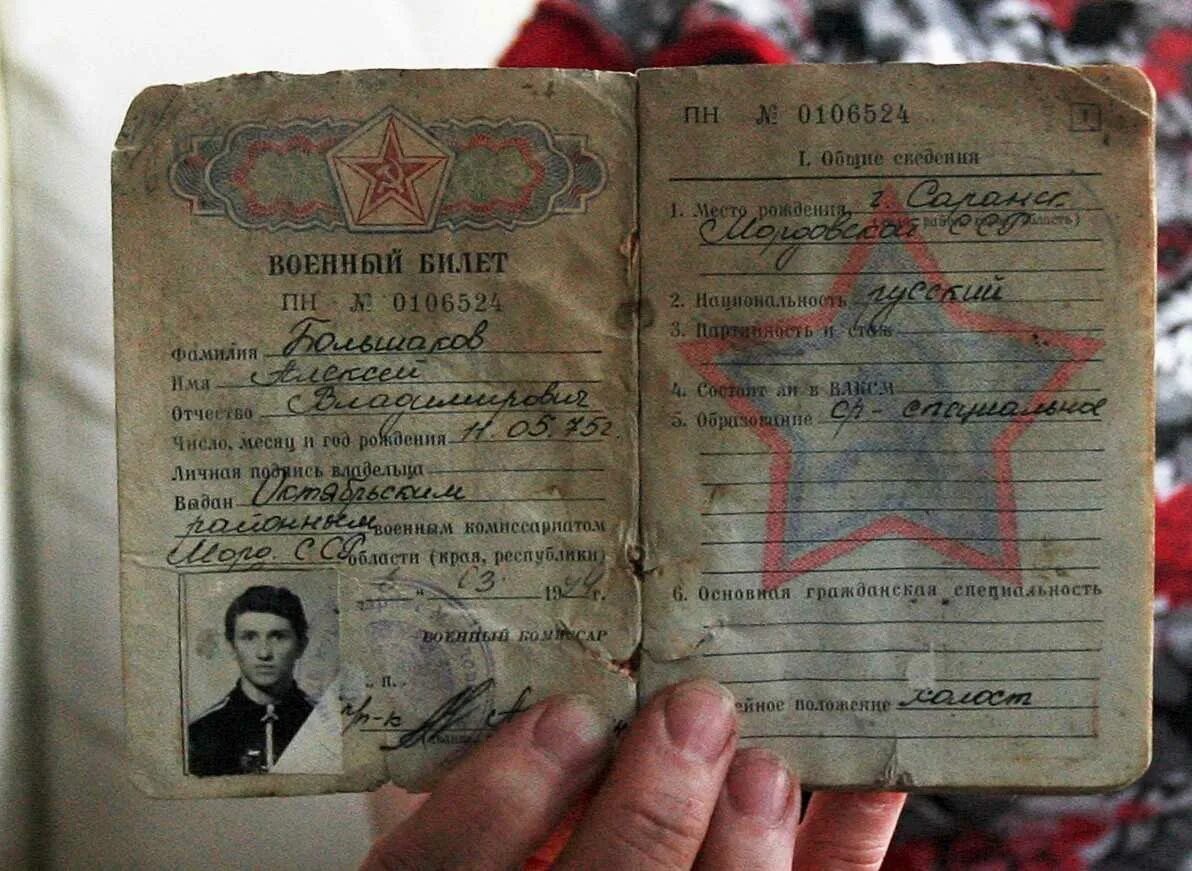 ВОЕННЫЙ БИЛЕТ
ПН № 0106524
Фамилия Большаков
Имя Алексей
Отчество Владимирович
Число, месяц и год рождения 11.05.75г.
Личная подпись владельца
Выдан Октябрьским
районным военным комиссариатом
Морд. ССР области (края, республики)
03. 1994 г.
ВОЕННЫЙ КОМИССАР
п.
пр-к
ПН № 0106524
1
I. Общие сведения
1. Место рождения г. Саранск
Мордовской ССР
2. Национальность русский
3. Партийность и стаж
4. Состоит ли в ВЛКСМ
5. Образование ср-специальное
6. Основная гражданская специальность
ейное положение холост